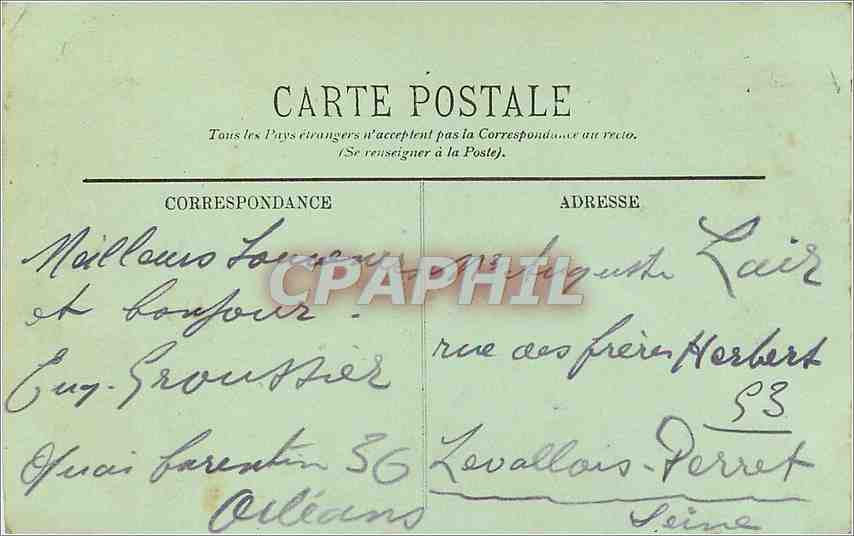 CARTE POSTALE
Tous les Pays étrangers n'acceptent pas la Correspondance au recto.
(Se renseigner à la Poste).
CORRESPONDANCE
Meilleurs Souvenirs
et bonjour.
Eug. Groussier
Quai barentin 36
Orléans
ADRESSE
Mr Auguste Lair
rue des frères Herbert
53
Levallois-Perret
Seine
CPAPHIL